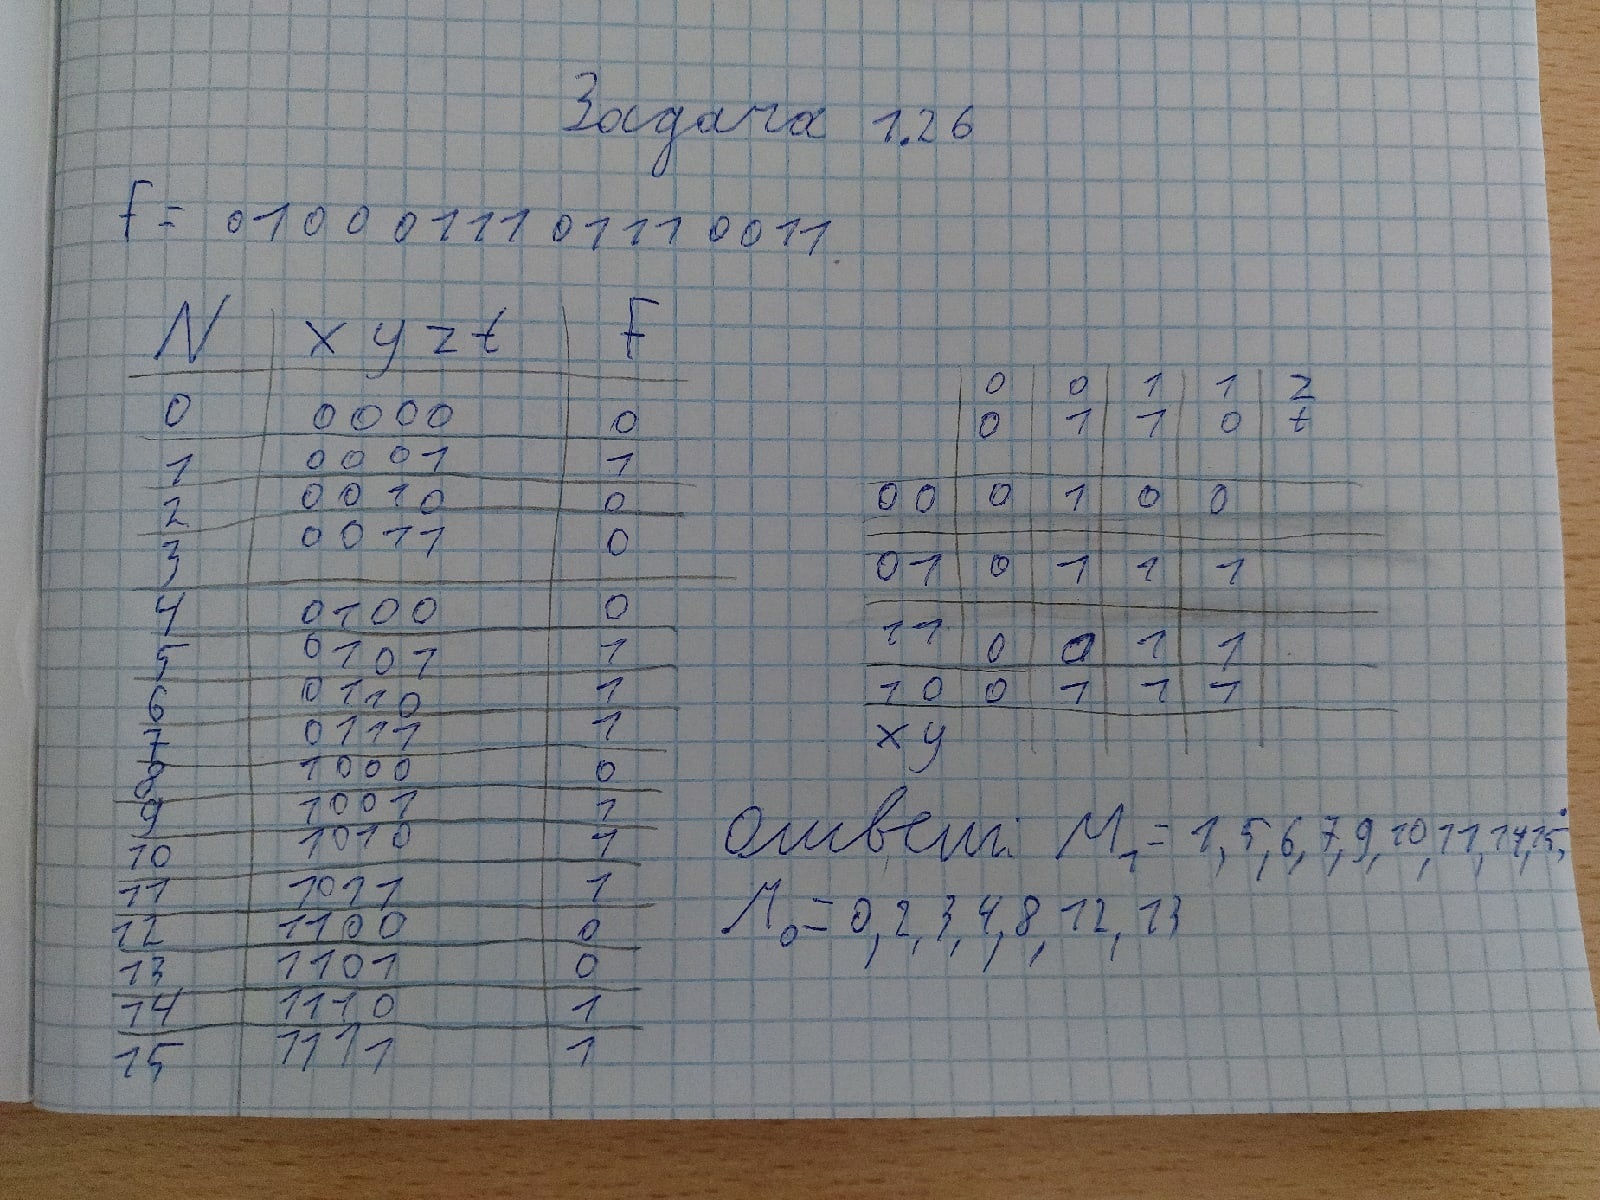 Задача 1.26
f = 0100 0111 0111 0011
N x y z t F
0 0000 0
1 0001 1
2 0010 0
3 0011 0
4 0100 0
5 0101 1
6 0110 1
7 0111 1
8 1000 0
9 1001 1
10 1010 1
11 1011 1
12 1100 0
13 1101 0
14 1110 1
15 1111 1
0 0 1 1 z
0 1 1 0 t
00 0 1 0 0
01 0 1 1 1
11 0 0 1 1
10 0 1 1 1
xy
Ответ: M1 = 1, 5, 6, 7, 9, 10, 11, 14, 15;
M0 = 0, 2, 3, 4, 8, 12, 13